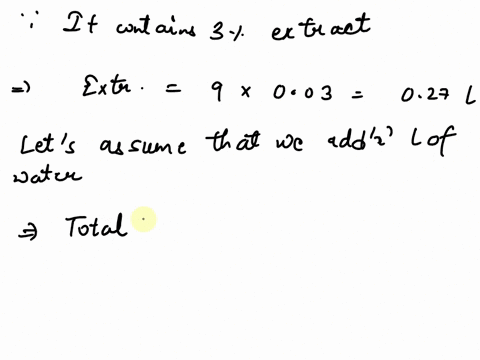 ∵ It contains 3% extract
⇒ Extr. = 9 × 0.03 = 0.27 L
Let's assume that we add 'x' L of
water
⇒ Total